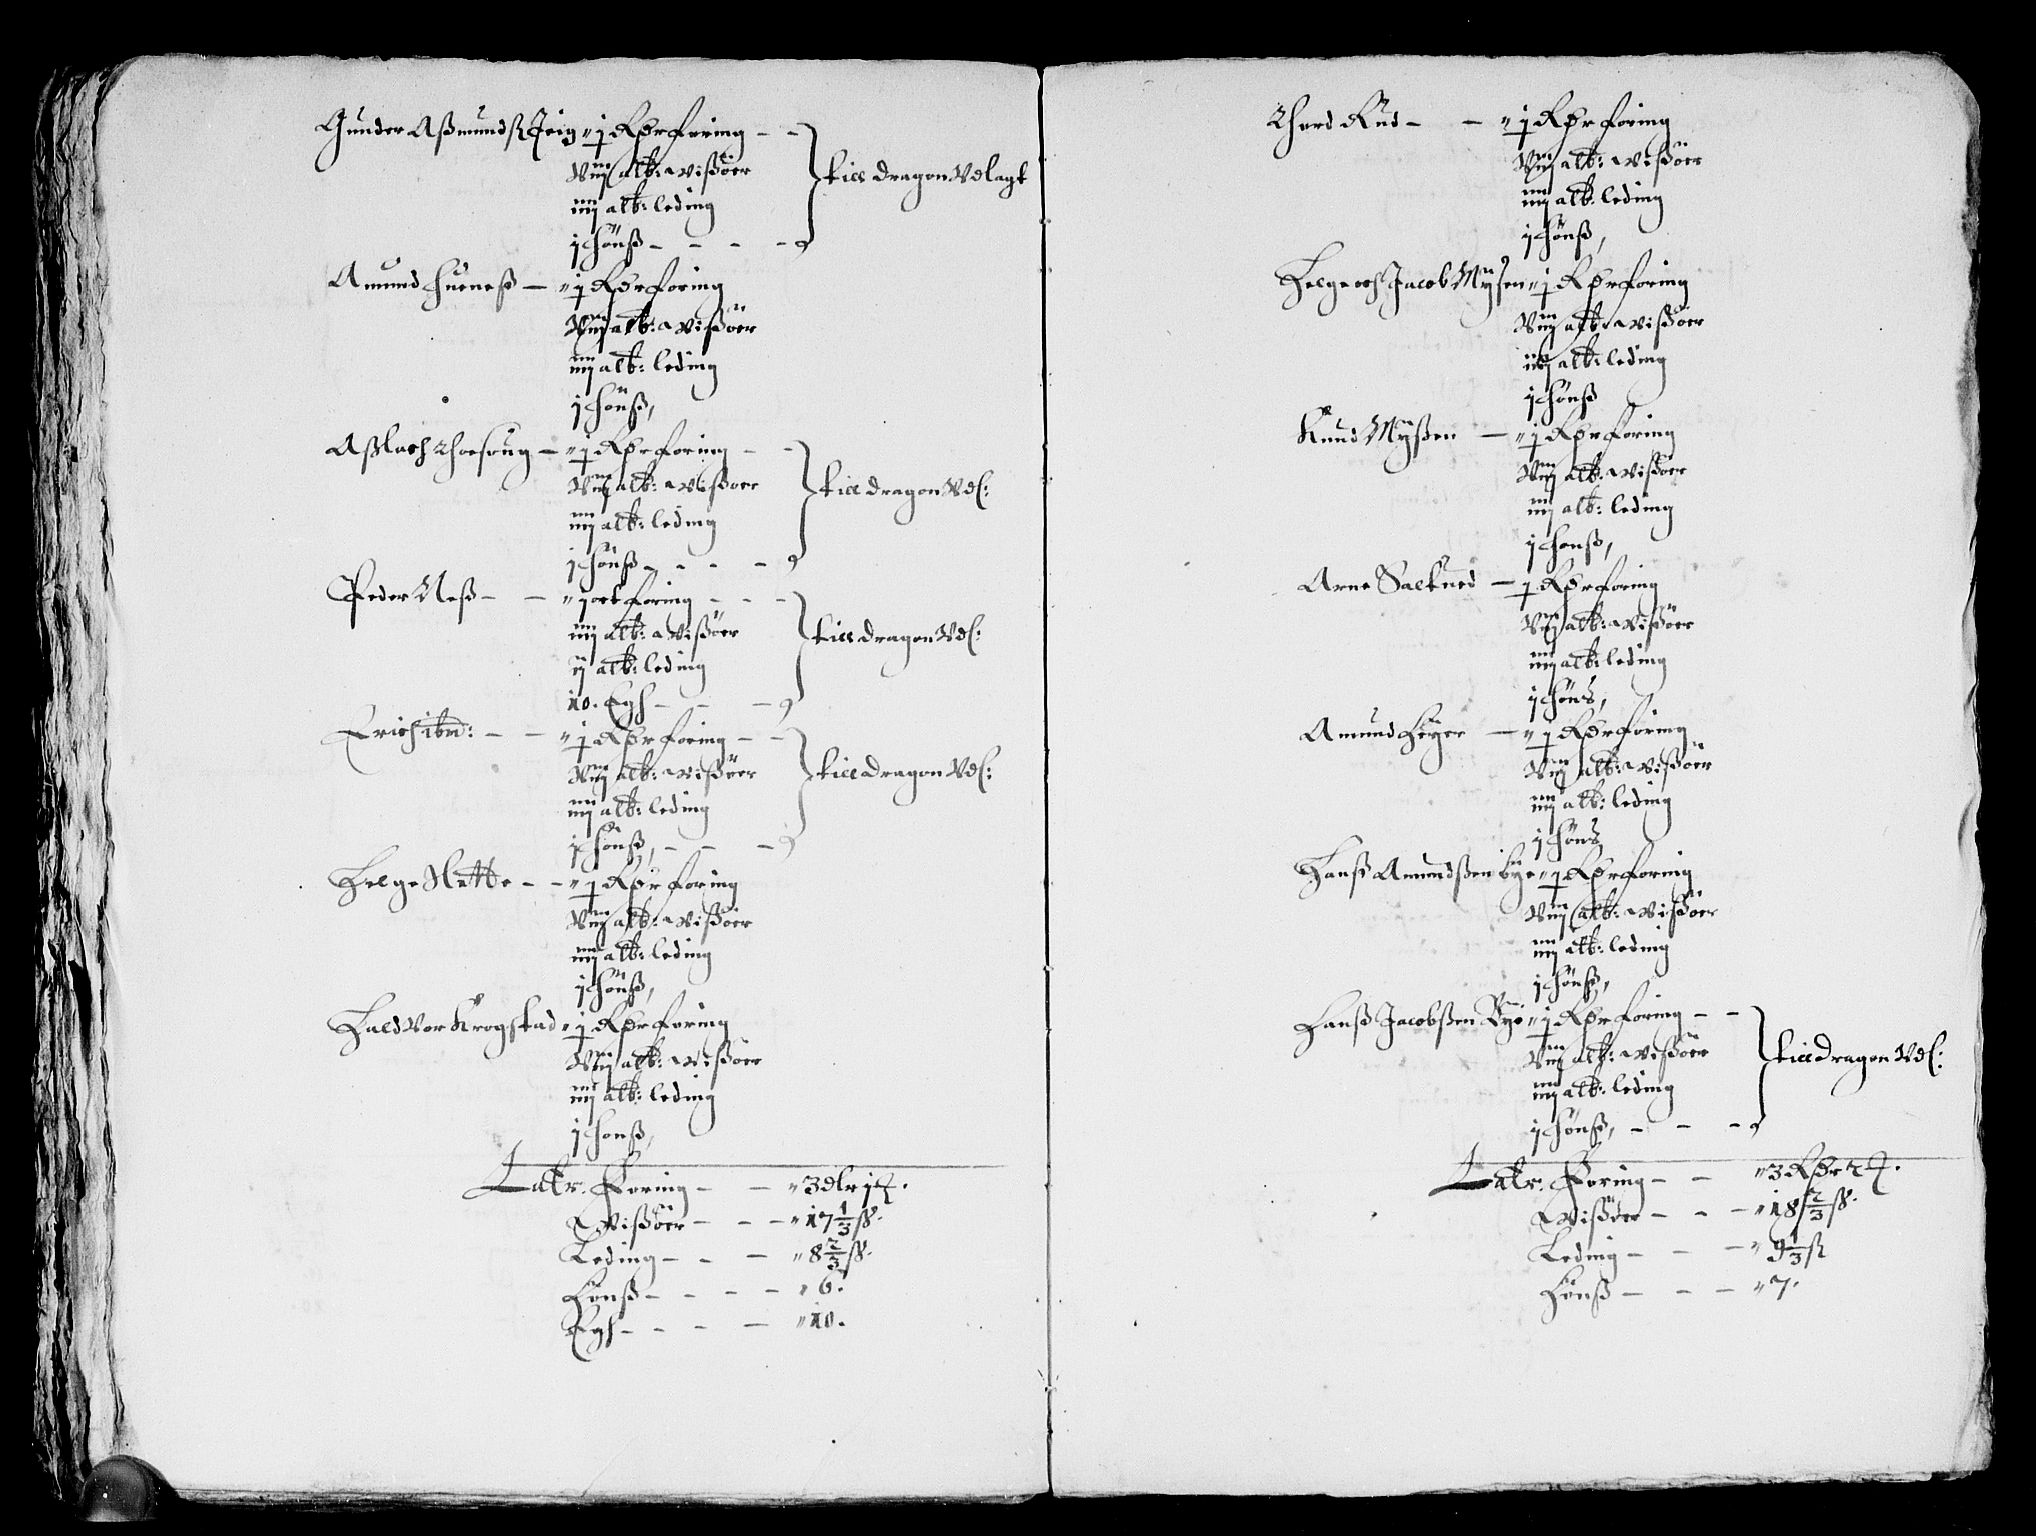 Gunder Aßmundß Jeig " j Rdr foring - -
Viij alb: a vißöer
iiij alb: leding
j höns - - - -
till dragon Vdlagt
Amund hueneß - " j Rdr foring
Viij alb: a vißöer
iiij alb: leding
j hönß,
Aßlach Thorsrug - " j Rdr foring - -
Viij alb: a vißöer
iiij alb: leding
j hönß - - - -
till dragon Vdl:
Peder Neß - - " j ort foring - - -
iiij alb: a vißöer
ij alb: leding
10. Egh - - -
till dragon Vdl:
Erich ibm: - - " j Rdr foring - -
Viij alb: a vißöer
iiij alb: leding
j hönß, - - -
till dragon Vdl:
Helge Slette - - " j Rdr foring
Viij alb: a vißöer
iiij alb: leding
j hönß,
Haldvor Krogstad " j Rdr foring
Viij alb: a vißöer
iiij alb: leding
j hönß,
Latr. Foring - - " 3 dlr j ꝗ.
Vißöer - - - " 17 1/3 ß.
Leding - - - " 8 2/3 ß.
Hönß - - - - " 6.
Egh - - - - " 10.
Thord Rud - - " j Rdr foring
Viij alb: a vißöer
iiij alb: leding
j hönß,
Helge och Jacob Mÿsen " j Rdr foring
Viij alb: a vißöer
iiij alb: leding
j hönß
Knud Mÿßen - " j Rdr foring
Viij alb: a vißöer
iiij alb: leding
j hönß,
Arne Salterud - j Rdr foring
Viij alb: a vißöer
iiij alb: leding
j höns,
Amund Heyer - " j Rdr foring
Viij alb: a vißöer
iiij alb: leding
j höns
Hanß Amundßen bye " j Rdr foring
Viij alb: a vißöer
iiij alb: leding
j hönß,
Hanß Jacobßen Bye " j Rdr foring - -
Viij alb: a vißöer
iiij alb: leding
j hönß, - - -
till dragon Vdl:
Latr. Foring - - " 3 Rdr 2 ꝗ.
Vißöer - - - " 18 2/3 ß.
Leding - - - " 9 1/3 ß
Hönß - - - " 7.